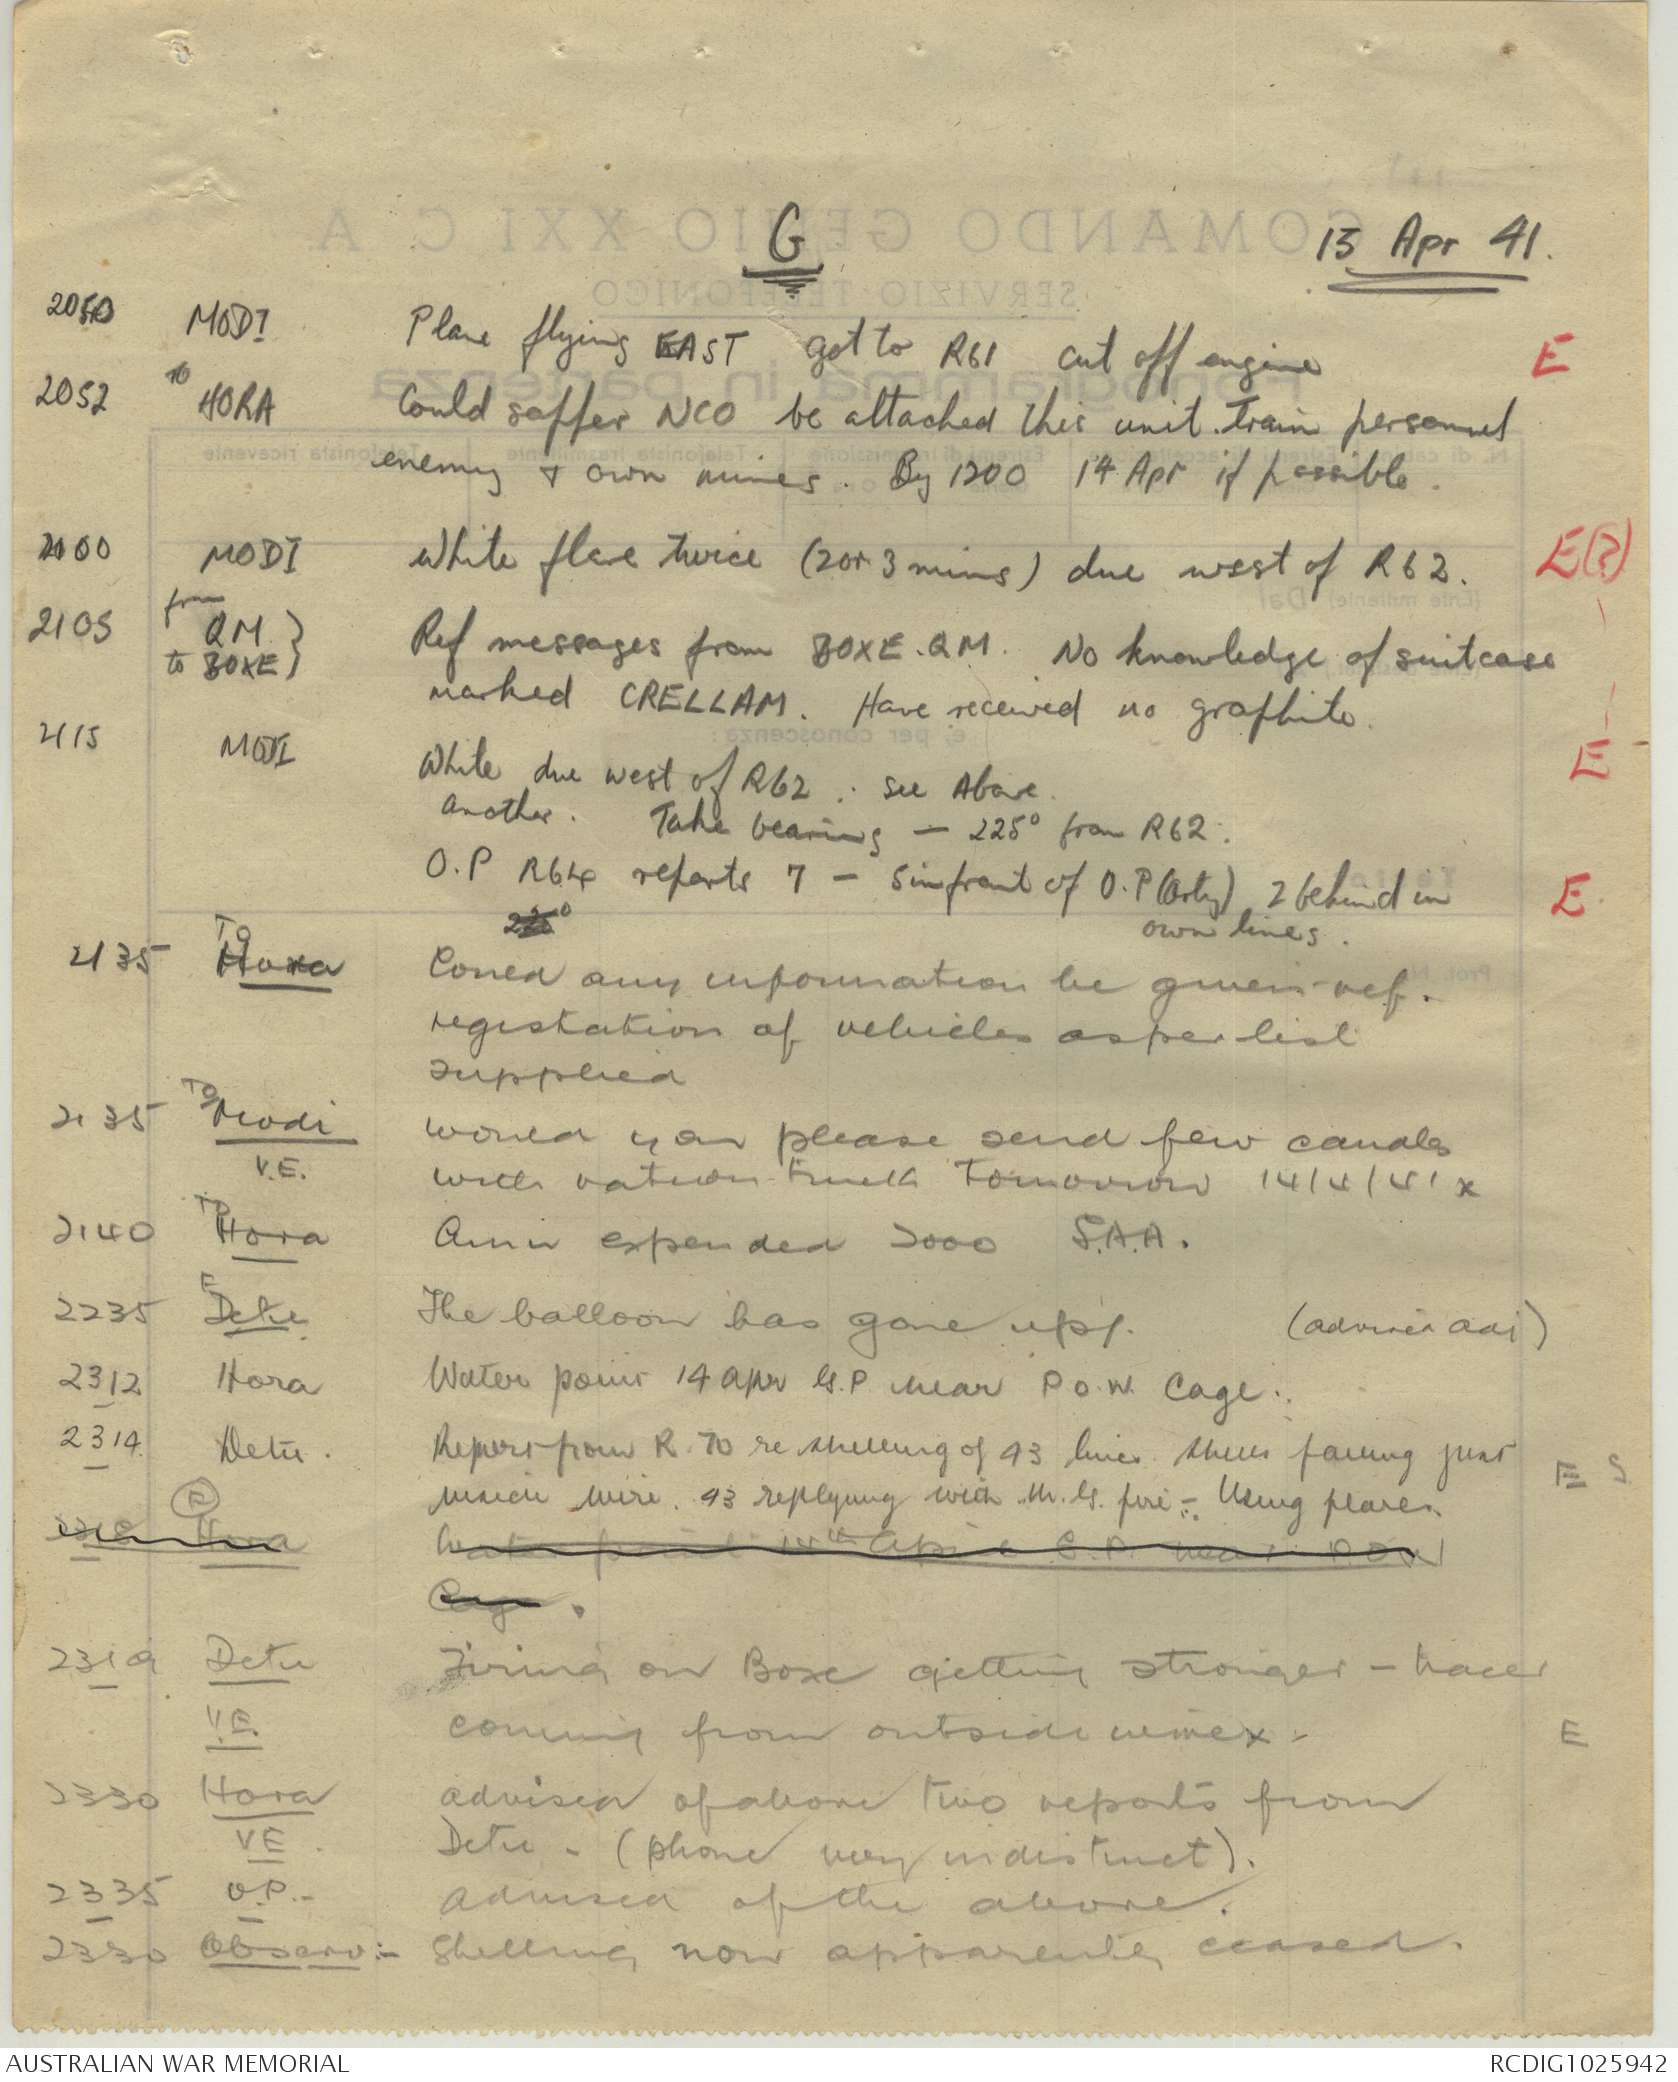 G
13 Apr 41.
2050 MODI Plane flying EAST got to R61 cut off engine E
2052 to HORA Could sapper NCO be attached this unit train personnel
enemy & own mines. By 1200 14 Apr if possible.
2100 MODI White flare twice (2 or 3 mins) due west of R62. E(?)
2105 from QM to BOXE } Ref messages from BOXE.QM. No knowledge of suitcase
marked CRELLAM. Have received no graphite.
2115 MODI White due west of R62 : see Above. E
another. Take bearing — 225° from R62.
O.P R64 reports 7 — 5 in front of O.P (Arty) 2 behind in E
own lines.
2135 To Hora Could any information be given ref.
registration of vehicles as per list
supplied
2135 To Modi would you please send few candles
V.E. with ration truck Tomorrow 14/4/41 x
2140 To Hora Amn expended 2000 S.A.A.
2235 E Detu The balloon has gone up. (advised adj)
2312 Hora Water point 14 Apr G.P. near P.O.W. Cage.
2314 Detu. Report from R.70 re shelling of 43 lines. Shells falling just E S
inside wire. 43 replying with M.G. fire - Using flares.
Hora Water point 14th April G.P. near P.O.W
Cage.
2319 Detu Firing on Boxe getting stronger - tracer
V.E. coming from outside wire x - E
2330 Hora advised of above two reports from
VE Detu - (phone very indistinct).
2335 O.P.- advised of the above.
2330 Observ:- Shelling now apparently ceased.
COMANDO GENIO XXI C. A.
SERVIZIO TELEFONICO
Fonogramma in partenza
AUSTRALIAN WAR MEMORIAL
RCDIG1025942